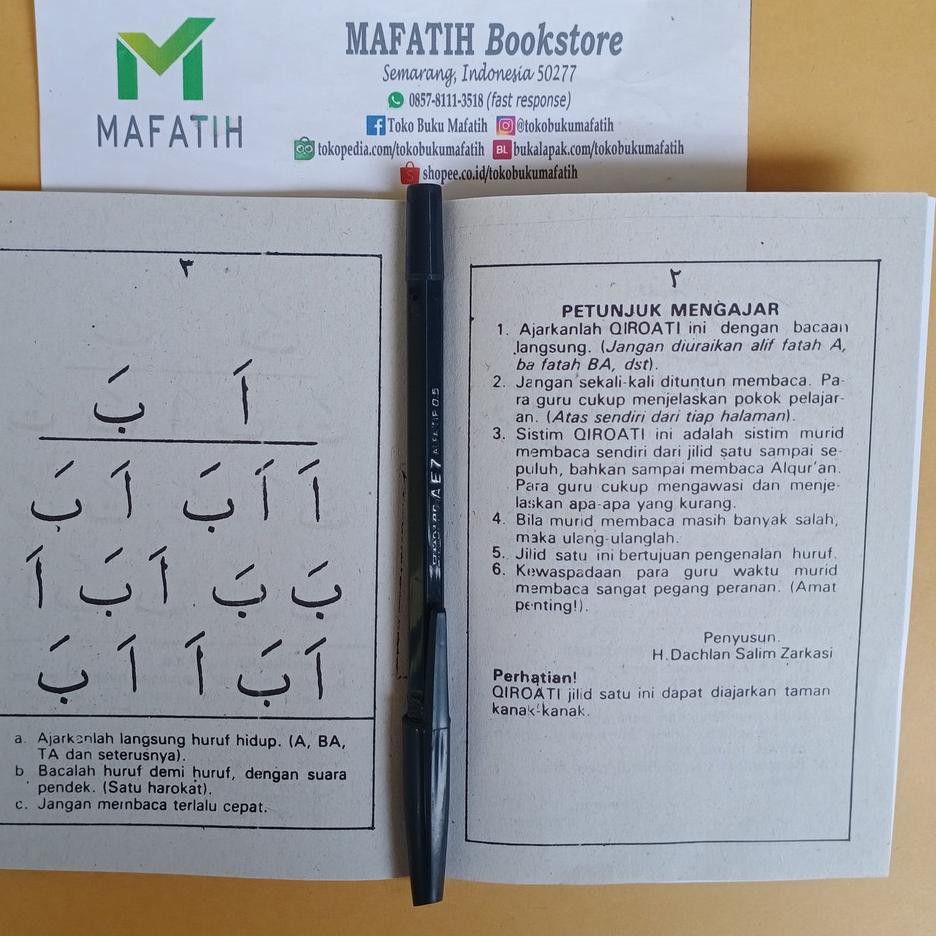 MAFATIH
MAFATIH Bookstore
Semarang, Indonesia 50277
0857-8111-3518 (fast response)
Toko Buku Mafatih @tokobukumafatih
tokopedia.com/tokobukumafatih BL bukalapak.com/tokobukumafatih
shopee.co.id/tokobukumafatih
٢
PETUNJUK MENGAJAR
1. Ajarkanlah QIROATI ini dengan bacaan
langsung. (Jangan diuraikan alif fatah A,
ba fatah BA, dst).
2. Jangan sekali-kali dituntun membaca. Pa-
ra guru cukup menjelaskan pokok pelajar-
an. (Atas sendiri dari tiap halaman).
3. Sistim QIROATI ini adalah sistim murid
membaca sendiri dari jilid satu sampai se-
puluh, bahkan sampai membaca Alqur'an.
Para guru cukup mengawasi dan menje-
laskan apa-apa yang kurang.
4. Bila murid membaca masih banyak salah,
maka ulang-ulanglah.
5. Jilid satu ini bertujuan pengenalan huruf.
6. Kewaspadaan para guru waktu murid
membaca sangat pegang peranan. (Amat
penting!).
Penyusun.
H.Dachlan Salim Zarkasi
Perhatian!
QIROATI jilid satu ini dapat diajarkan taman
kanak-kanak.
٣
اَ بَ
اَ اَ بَ اَ بَ
بَ بَ اَ بَ اَ
اَ بَ اَ اَ بَ
a. Ajarkanlah langsung huruf hidup. (A, BA,
TA dan seterusnya).
b. Bacalah huruf demi huruf, dengan suara
pendek. (Satu harokat).
c. Jangan membaca terlalu cepat.
AE7 ALFATIP 0.5